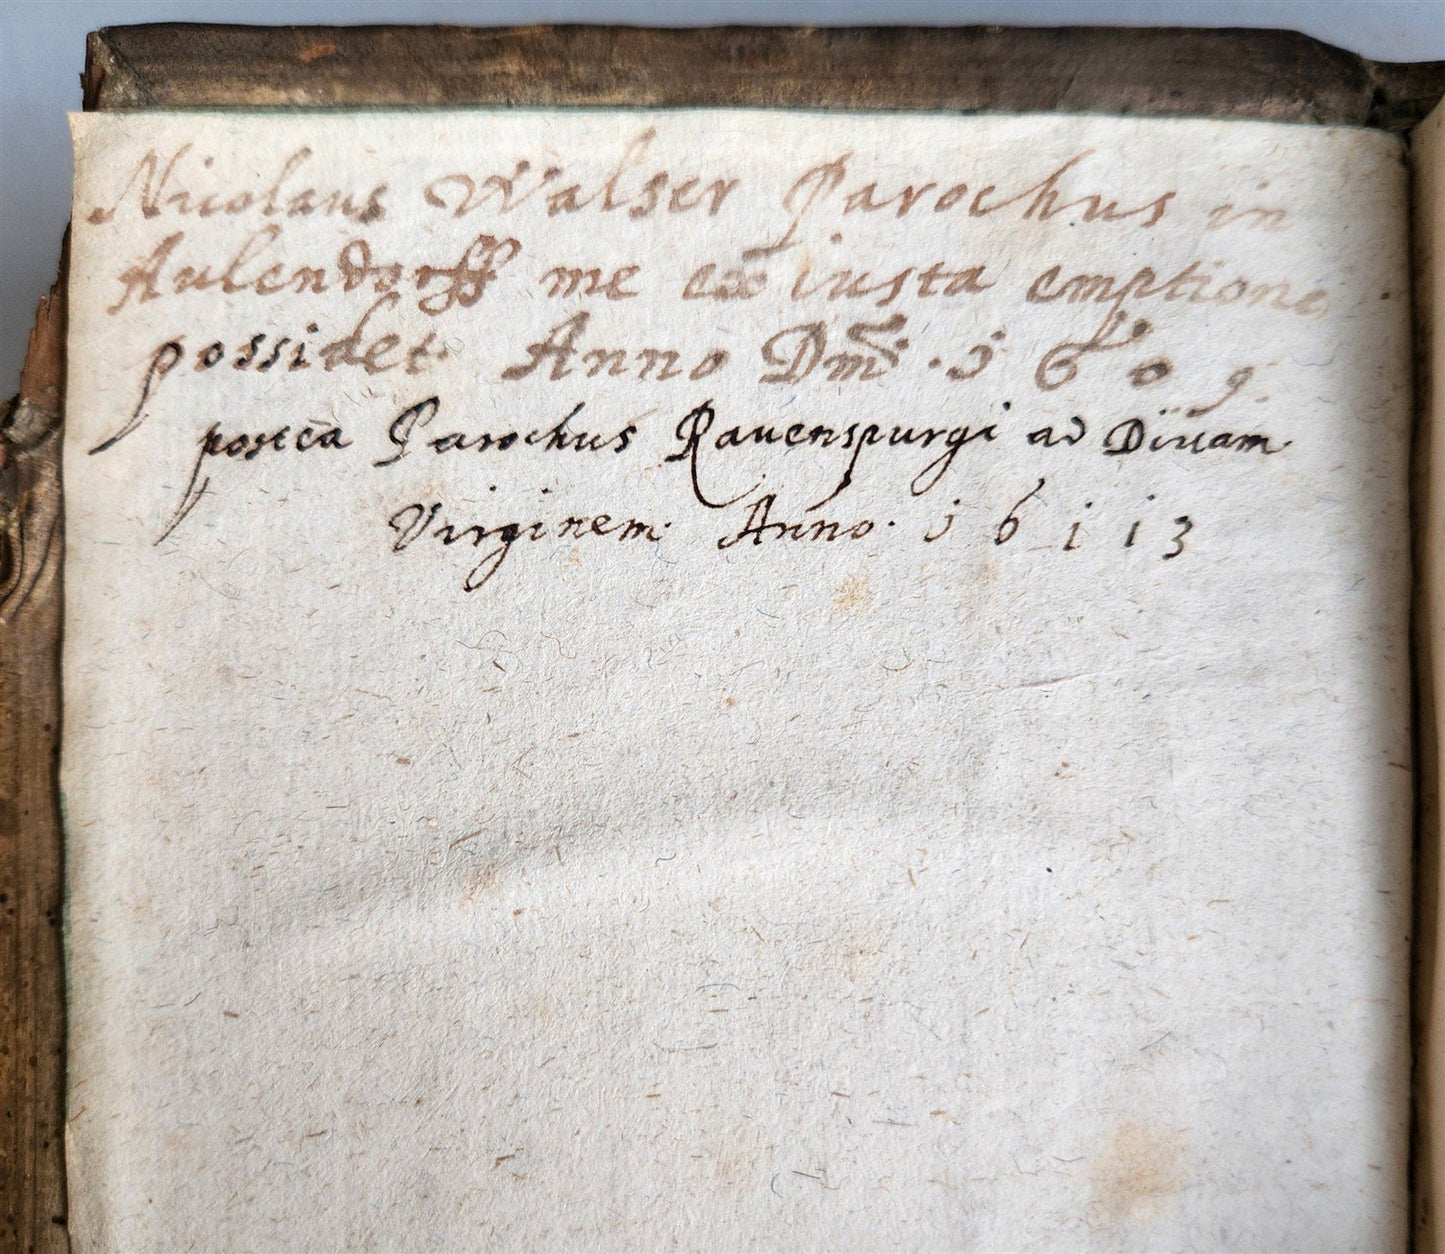 Nicolaus Walser Parochus in
Aulendorff me ex iusta emptione
possidet. Anno Dmĩ. 1609.
postea Parochus Rauenspurgi ad Diuam
Virginem. Anno. 16113